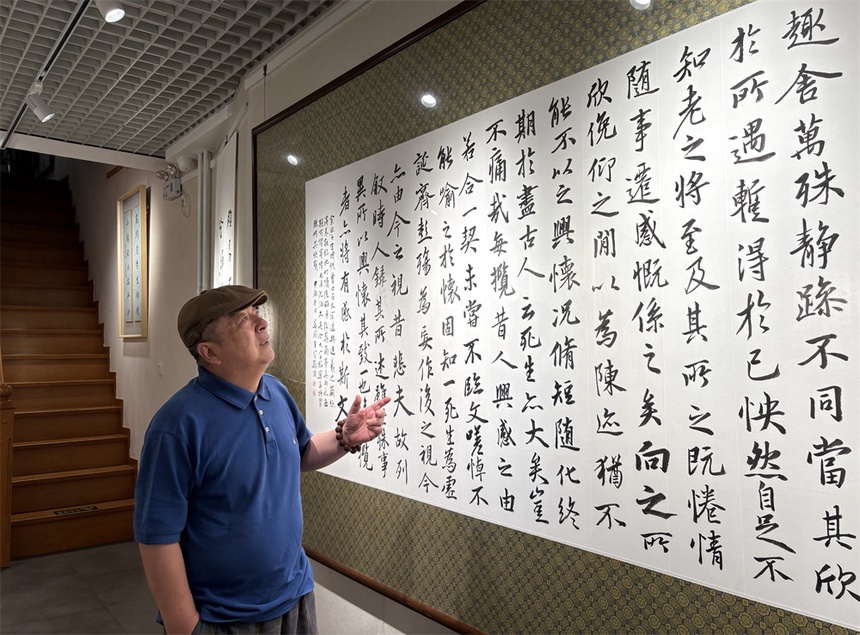 趣舍萬殊静躁不同當其欣
於所遇蹔得於己怏然自足不
知老之將至及其所之既惓情
随事遷感慨係之矣向之所
欣俛仰之閒以為陳迹猶不
能不以之興懷况脩短随化終
期於盡古人云死生亦大矣豈
不痛哉每攬昔人興感之由
若合一契未嘗不臨文嗟悼不
能喻之於懷固知一死生為虛
誕齊彭殤為妄作後之視今
亦由今之視昔悲夫故列
叙時人錄其所述雖殊事
異所以興懷其致一也攬
者亦將有感於斯文